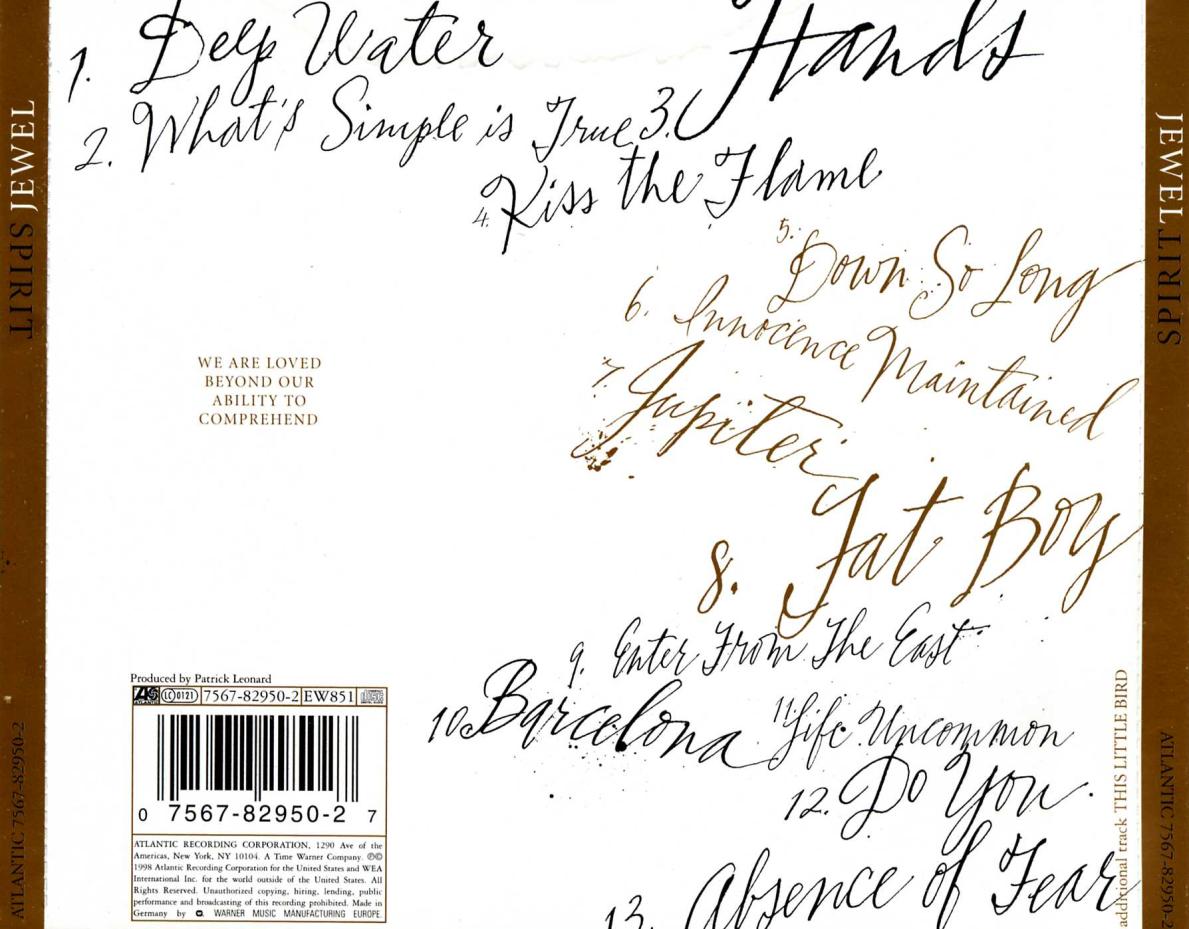 1. Deep Water
2. What's Simple is True
3. Hands
4. Kiss the Flame
5. Down So Long
6. Innocence Maintained
7. Jupiter
8. Fat Boy
9. Enter From The East
10. Barcelona
11. Life Uncommon
12. Do You
13. Absence of Fear
additional track THIS LITTLE BIRD
WE ARE LOVED
BEYOND OUR
ABILITY TO
COMPREHEND
Produced by Patrick Leonard
ATLANTIC LC 0121 7567-82950-2 EW851
0 7567-82950-2 7
ATLANTIC RECORDING CORPORATION, 1290 Ave of the
Americas, New York, NY 10104. A Time Warner Company. ℗©
1998 Atlantic Recording Corporation for the United States and WEA
International Inc. for the world outside of the United States. All
Rights Reserved. Unauthorized copying, hiring, lending, public
performance and broadcasting of this recording prohibited. Made in
Germany by WARNER MUSIC MANUFACTURING EUROPE.
JEWEL SPIRIT
ATLANTIC 7567-82950-2
JEWEL SPIRIT
ATLANTIC 7567-82950-2